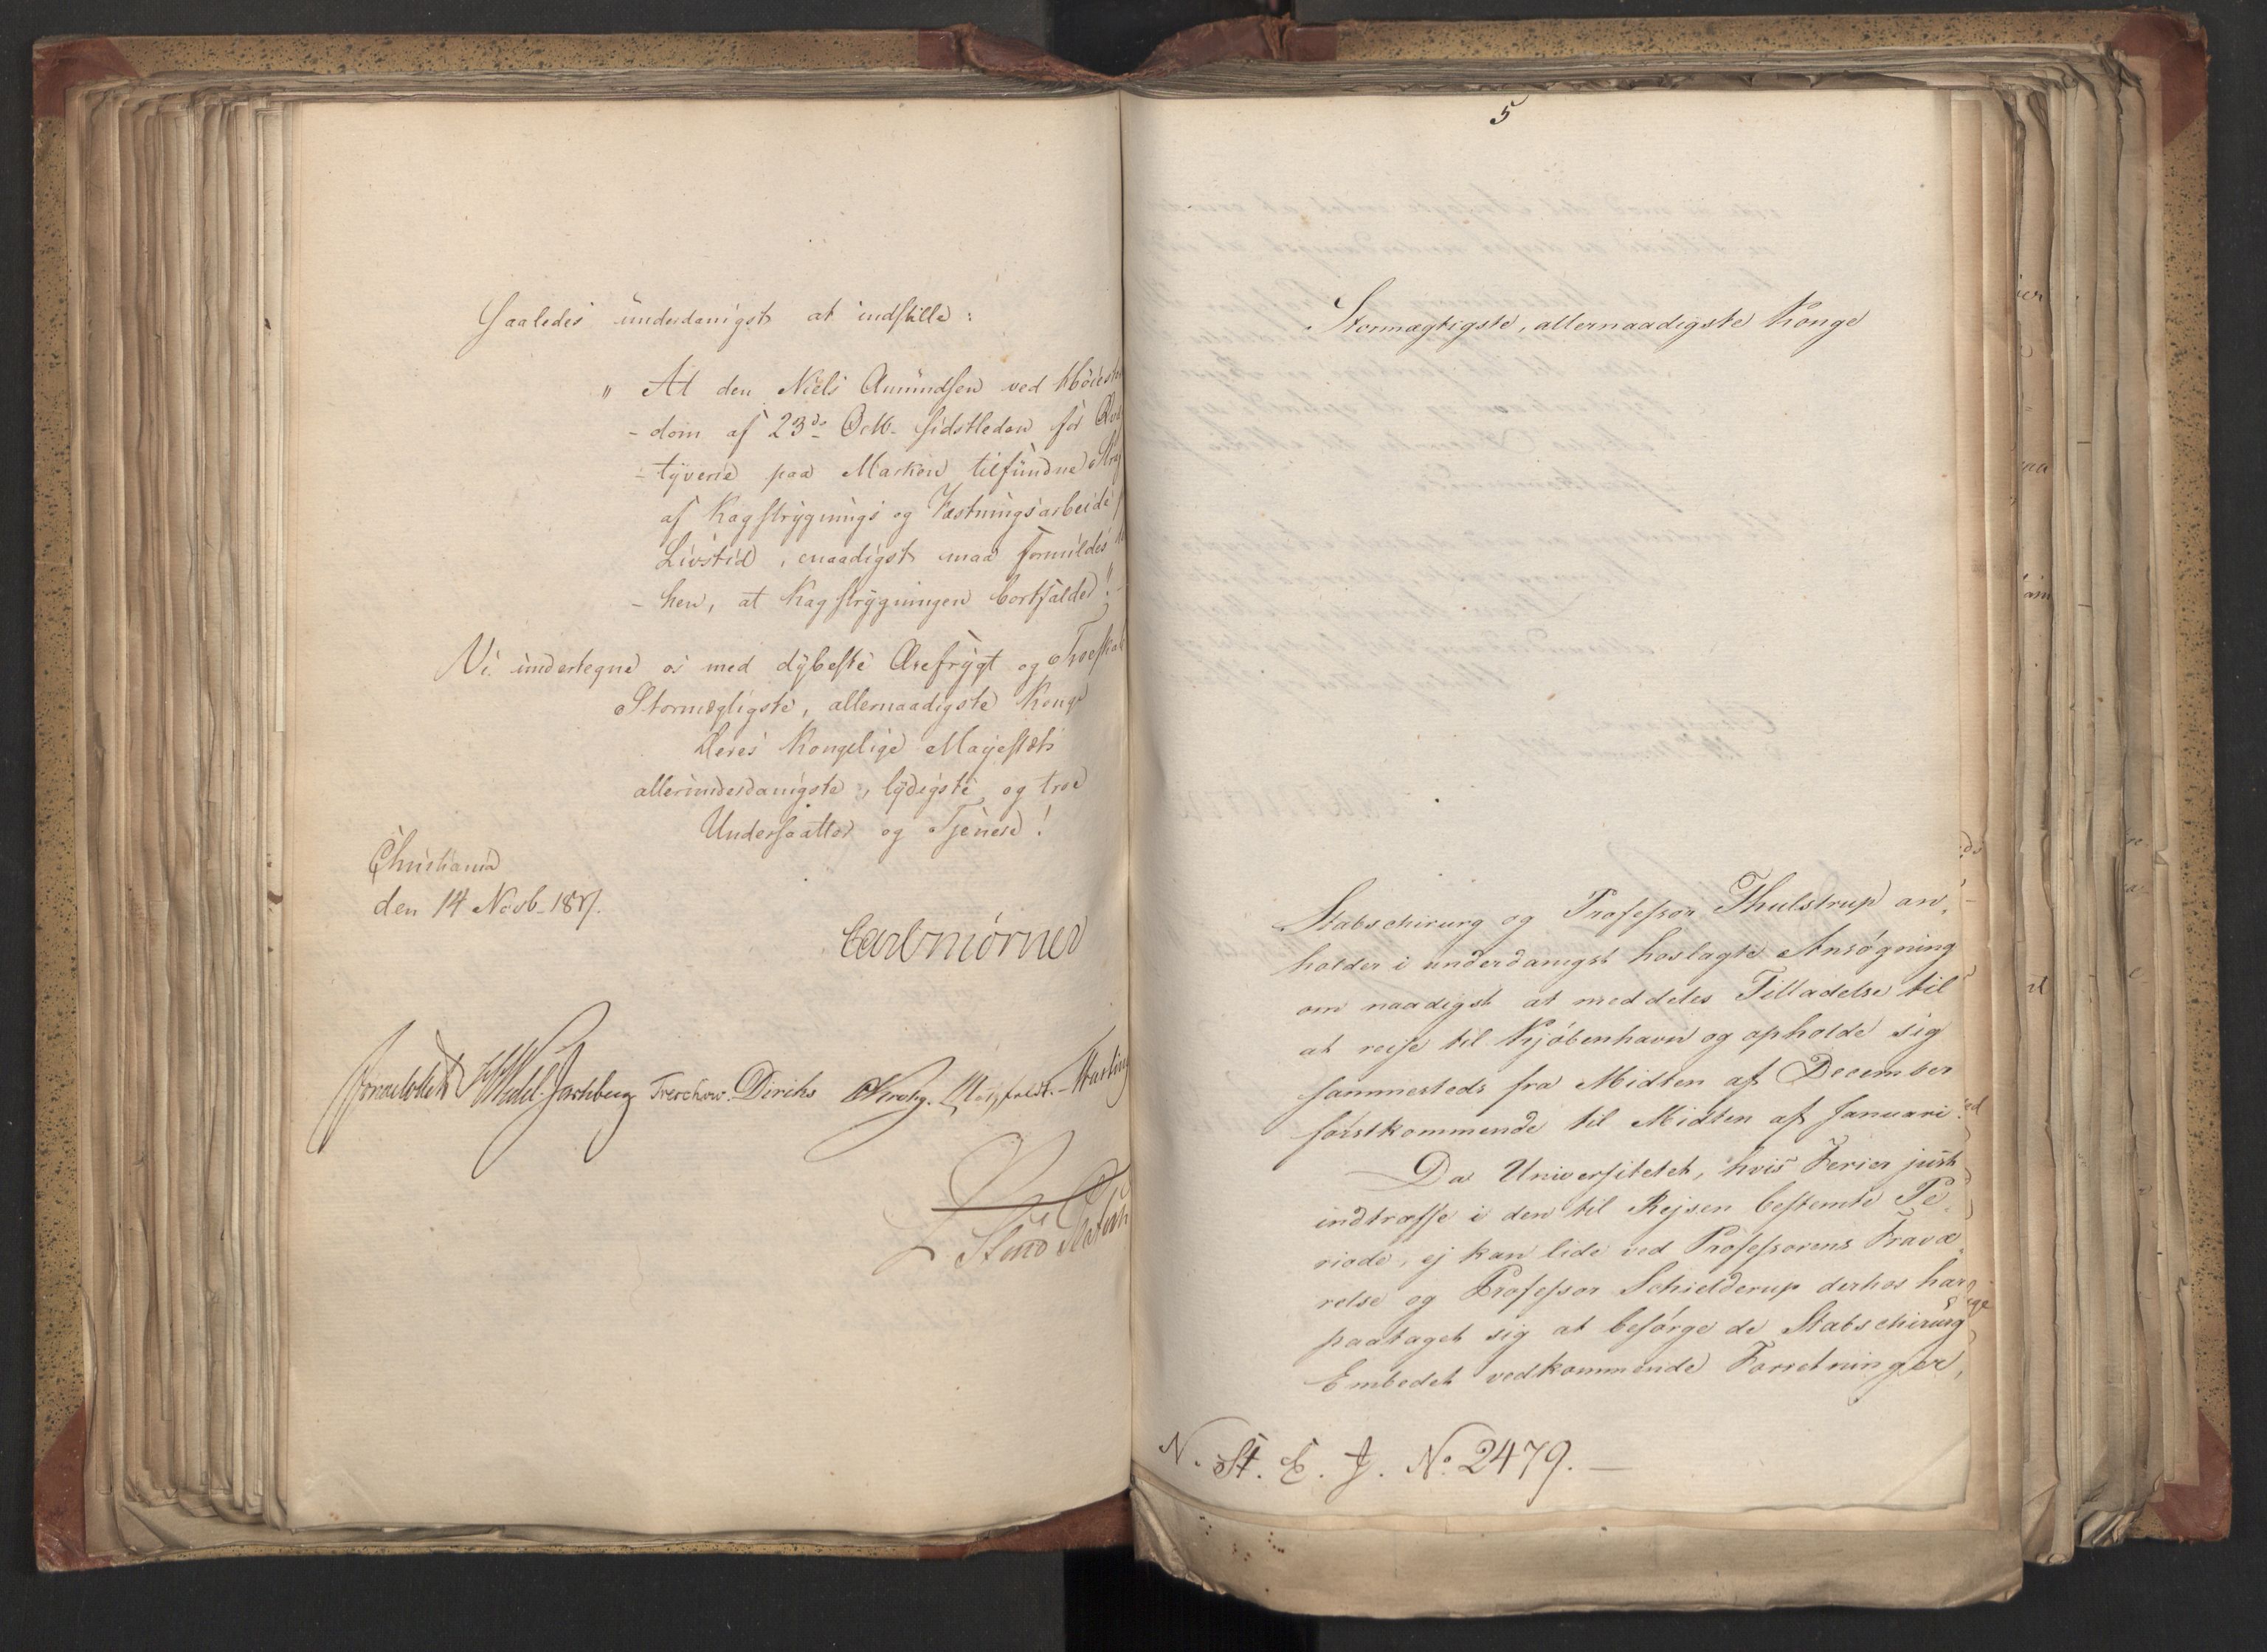 Saaledes underdanigst at indstille:
" At den Niels Amundsen ved Höieste
- dom af 23de Octb. sidstleden for
- tyverie paa Marken tilfundne
af Kagstrygnings og Fæstningsarbeide
Livstid, naadigst maa formildes
- hen, at Kagstrygningen bortfalder!"
Vi undertegne os med dybeste Ærefrygt og Troeskab
Stormægtigste, allernaadigste Konge
Deres Kongelige Majestæts
allerunderdanigste, lydigste og troe
Undersaatter og Tjenere!
Christiania
den 14 Novb. 1817.
Carl Mörner
Sommerhielm Wedel-Jarlsberg Treschow. Diriks Krohg. Motzfeldt.
5
Stormægtigste, allernaadigste Konge
Stabschirurg og Professor Thulstrup an-
holder i underdanigst hoslagte Ansøgning
om naadigst at meddeles Tilladelse til
at rejse til Kjöbenhavn og opholde sig
sammesteds fra Midten af December
førstkommende til Midten af Januari
Da Universitetet, hvis Ferier just
indtræffe i den til Rejsen bestemte Pe-
riode, ej kan lide ved Professorens Fravæ-
relse og Professor Schielderup derhos har
paataget sig at besørge de Stabschirurg
Embedet vedkommende Forretninger,
N. St. E. J. No. 2479. —